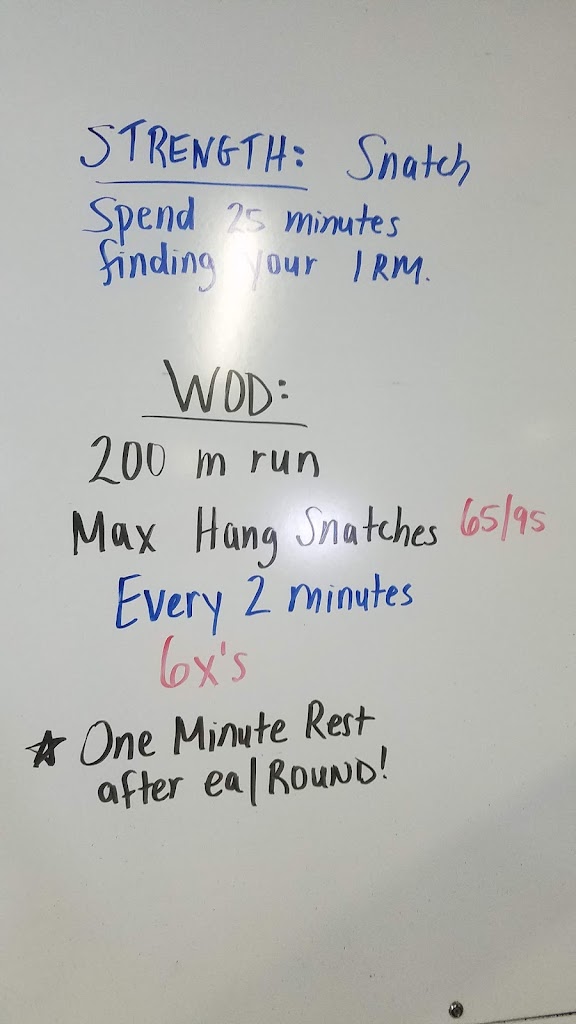 STRENGTH: Snatch
Spend 25 minutes
finding your 1 RM.
WOD:
200 m run
Max Hang Snatches 65/95
Every 2 minutes
6x's
☆ One Minute Rest
after ea/ROUND!